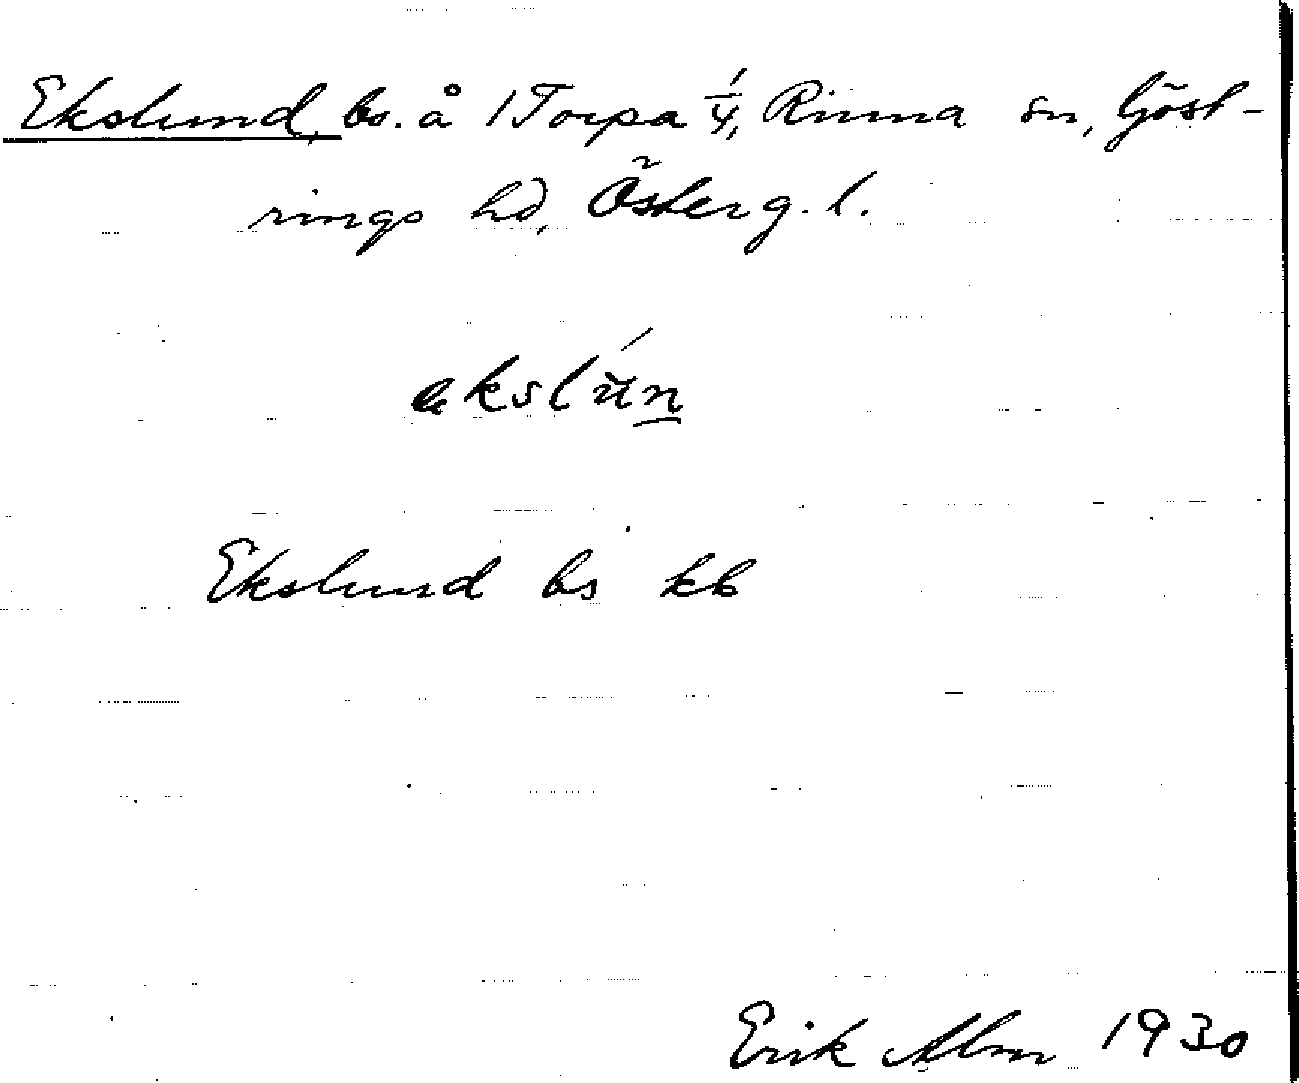 Ekslund, bs. å 1 Torpa 1/4, Rinna sn, Göst-
rings hd, Österg. l.
Ekslund bs kb
Erik Alm 1930